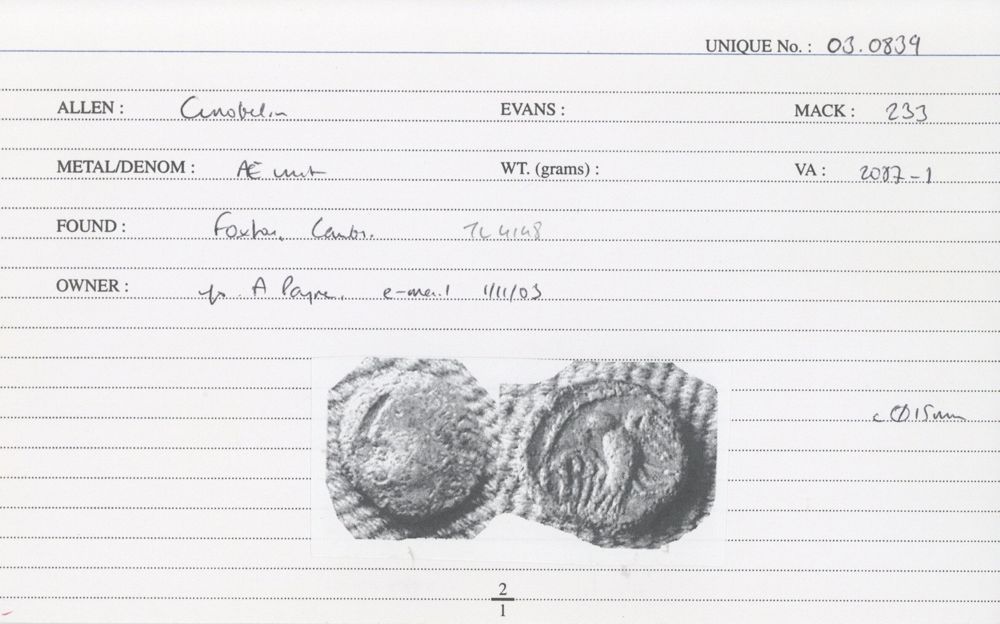 UNIQUE No. : 03.0839
ALLEN : Cunobelin EVANS : MACK : 233
METAL/DENOM : Æ unit WT. (grams) : VA : 2087-1
FOUND : Foxton, Cambs. TL 4148
OWNER : A Payne, e-mail 1/11/03
c Ø 15mm
2
1